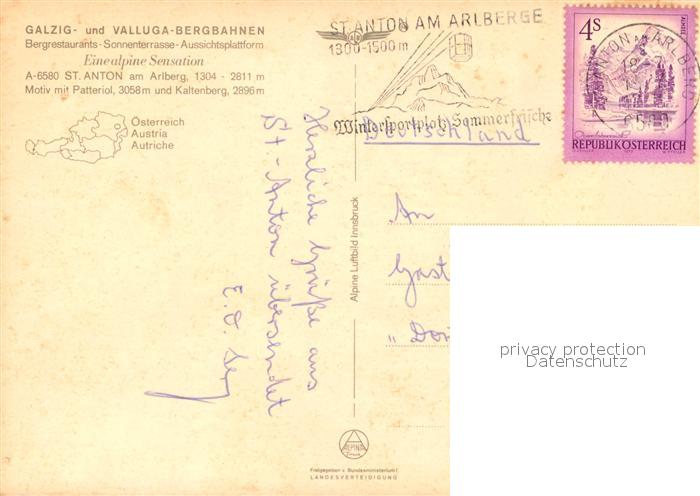 GALZIG- und VALLUGA-BERGBAHNEN
Bergrestaurants-Sonnenterrasse-Aussichtsplattform
Eine alpine Sensation
A-6580 ST. ANTON am Arlberg, 1304 - 2811 m
Motiv mit Patteriol, 3058 m und Kaltenberg, 2896 m
Österreich
Austria
Autriche
Herzliche Grüße aus
St. Anton übersendet
E. O.
Alpine Luftbild Innsbruck
ALPINE
Freigegeben v. Bundesministerium f.
LANDESVERTEIDIGUNG
ST. ANTON AM ARLBERGE
1300-1500 m
Wintersportplatz Sommerfrische
Deutschland
4S
REPUBLIK ÖSTERREICH
ST. ANTON AM ARLBERG
6580
An
Gast
"Dor
privacy protection
Datenschutz